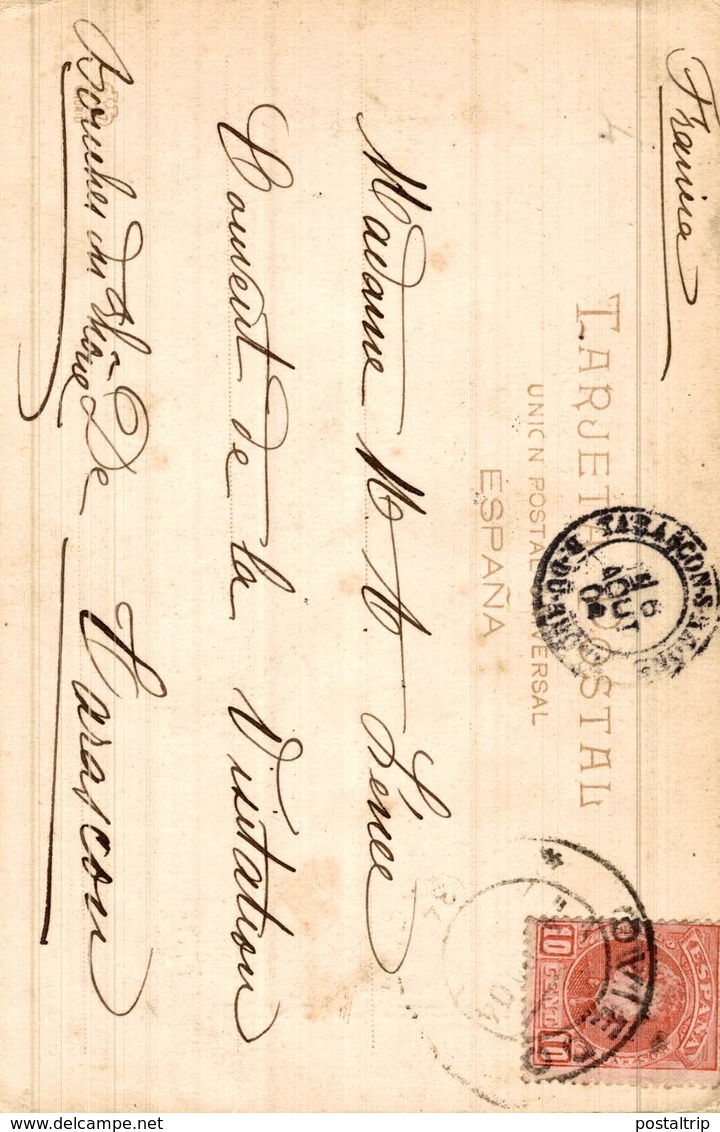 Francia
TARJETA POSTAL
UNION POSTAL UNIVERSAL
ESPAÑA
TARASCON-S-RHONE
6
AOUT
04
ESPAÑA
10 CENTS 10
04
Madame M. A. Lénee
Couvent de la Visitation
De Tarascon
Bouches du Rhône
postaltrip